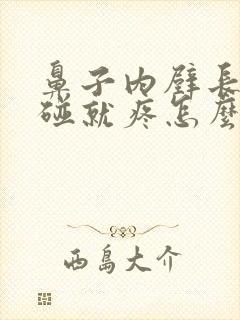 鼻子内壁長
碰就疼怎麼
西島大介